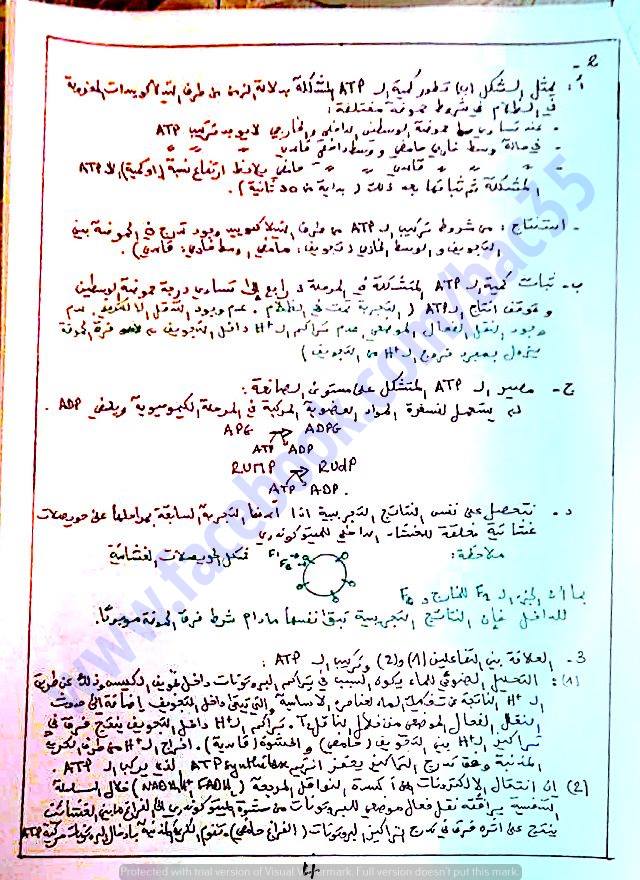 2-
أ: يمثل الشكل (ب) تطور كمية الـ ATP المتشكلة بدلالة الزمن من طرف التيلاكويدات المعزولة
في الظلام في شروط حموضة مختلفة:
- عند تساوي حموضة الوسطين الداخلي والخارجي لا يوجد تركيب ATP
- في حالة وسط خارجي حامضي ووسط داخلي قاعدي " " "
- " " " قاعدي " " حامضي يلاحظ ارتفاع نسبة (أو كمية) الـ ATP
المتشكلة ثم ثباتها بعد ذلك (بداية من ثانية).
- استنتاج: من شروط تركيب الـ ATP من طرف التيلاكويد وجود تدرج في الحموضة بين
التجويف والوسط الخارجي (تجويف: حامضي، وسط خارجي: قاعدي).
ب- ثبات كمية الـ ATP المتشكلة في المرحلة راجع إلى تساوي درجة حموضة الوسطين
وتوقف انتاج الـ ATP (التجربة تمت في الظلام. عدم وجود النقل. عدم
وجود النقل الفعال للبروتونات، عدم تراكم الـ H+ داخل التجويف فرق الحموضة
يزول بمجرد خروج الـ H+ من التجويف)
ج- مصير الـ ATP المتشكل على مستوى الصانعة:
يستعمل لفسفرة المواد العضوية المركبة في المرحلة الكيموحيوية ويلقى ADP.
APG → ADPG
ATP ADP
RUMP → RUdP
ATP ADP.
د- نتحصل على نفس النتائج التجريبية اذا التجربة السابقة بمراحلها على حويصلات
غشائية مغلقة للغشاء الداخلي للميتوكوندري
ملاحظة: F1 شكل الحويصلات الغشائية
F0
بما أن الجزء الـ F1 للخارج و F0
للداخل فإن النتائج التجريبية تبقى نفسها مادام شرط فرق الحموضة موجودًا.
3- العلاقة بين التفاعلين (1) و(2) وتركيب الـ ATP:
(1): التحليل الضوئي للماء يكون السبب في تراكم البروتونات داخل تجويف الكييس وذلك عن طريق
الـ H+ الناتجة عن تفكيك الماء لعناصره الأساسية والتي تبقى داخل التجويف بإضافة إلى حدوث
النقل الفعال من خلال الناقل. تراكم الـ H+ داخل التجويف ينتج فرقا في
تراكيز الـ H+ بين التجويف (حامضي) والحشوة (قاعدية). اخراج الـ H+ من طرف الكرية
المذنبة وفق تدرج التراكيز يحفز انزيم ATP synthétase الذي يركب الـ ATP
(2) إن انتقال الإلكترونات من أكسدة النواقل المرجعة (NADH,H+ FADH2) خلال السلسلة
التنفسية يرافقه نقل فعال للبروتونات من حشوة الميتوكوندري إلى الفراغ ما بين الغشائين
ينتج على اثره فرق في تدرج تراكيز البروتونات (الفراغ حامضي) تقوم الكرية المذنبة بادخال البروتونات مركبة ATP
www.facebook.com/bac35
Protected with trial version of Visual Watermark. Full version doesn't put this mark.